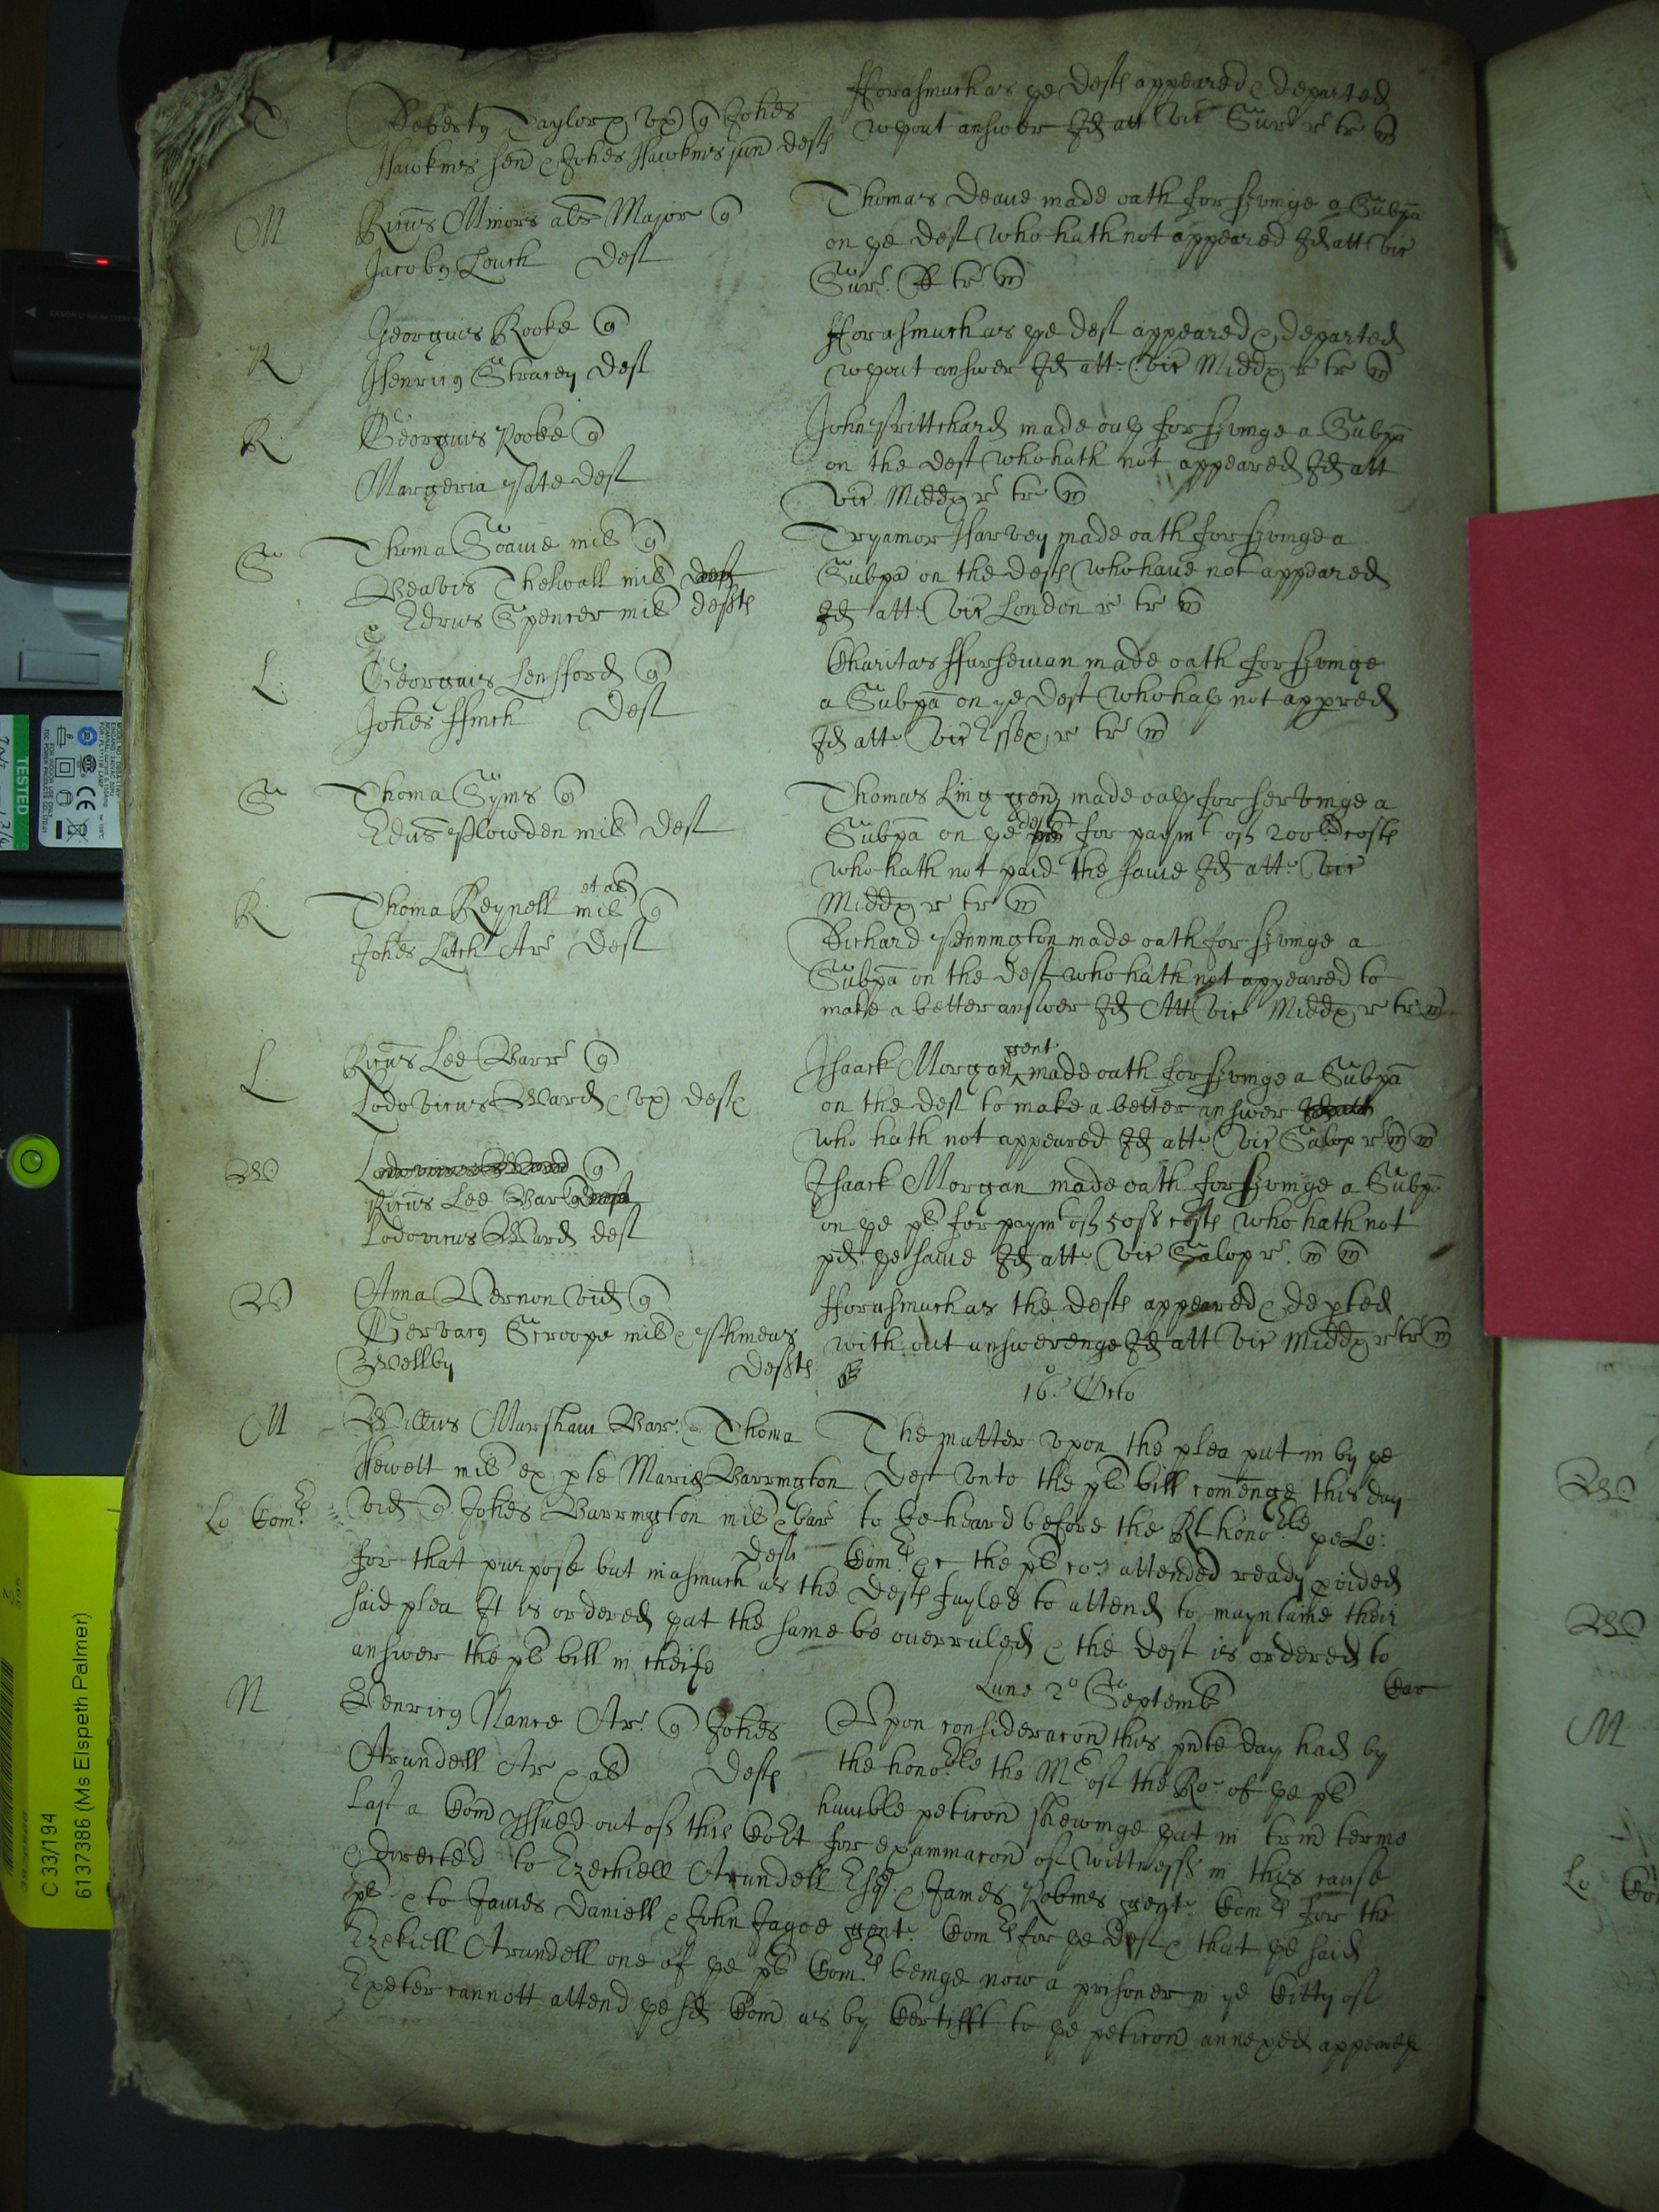 T
Robertus Taylor & ux q Johes
Hawkins sen & Johes Hawkins jun defts
fforasmuch as ye defts appeared & departed
wthout answer Id att vic Surr r tr m
M
Ricus Minors als Major q
Jacobus Couch deft
Thomas Deane made oath for sṽinge a Subpa
on ye deft who hath not appeared Id att vic
Surr. r tr m
R
Georgius Rooke q
Henricus Stracey deft
fforasmuch as ye deft appeared & departed
wthout answer Id att. vic Middx r tr m
R
Georgius Rooke q
Margeria Pate deft
John Prittchard made oath for sṽinge a Subpa
on the deft who hath not appeared Id att
vic Middx r tr m
S
Thoma Soame mil q
Beavis Thelwall mil deft
& Edrus Spencer mil defts
Tryamor Harvey made oath for sṽinge a
Subpa on the defts who haue not appeared
Id att. vic London r tr m
L
Georgius Lensford q
Johes ffinch deft
Charitas ffurseman made oath for sṽinge
a Subpa on ye deft who hath not appred
Id att. vic Essex r tr m
S
Thoma Syms q
Edus Plowden mil deft
Thomas Ling gen made oath for servinge a
Subpa on ye deft for paymt of 200li costs
who hath not paid the same Id att. vic
Middx r tr m
R
Thoma Reynell mil et al q
Johes Latch Ar deft
Richard Pennington made oath for sṽinge a
Subpa on the deft who hath not appeared to
make a better answer Id Att vic Middx r tr m
L
Ricus Lee Barr q
Lodovicus Ward & ux defts
Isaack Morgan gent made oath for sṽinge a Subpa
on the deft to make a better answer Id att
who hath not appeared Id att. vic Salop r m m
W
Lodovicus Ward q
Ricus Lee Bar q deft
Lodovicus Ward deft
Isaack Morgan made oath for sṽinge a Subpa
on ye pl for paymt of 50s costs who hath not
pd ye same Id att. vic Salop r. m m
V
Anna Vernon vid q
Gervacus Scroope mil & Phineas
Wellby defts
fforasmuch as the defts appeared & depted
without answerenge Id att vic Middx r tr m
16o. Octo
M
Willus Marsham Bar. & Thoma
Hewett mil ex ple Marie Barrington
Lo Comrs
vid q Johes Barrington mil & bart
defts
The matter vpon the plea put in by ye
deft vnto the pls bill comenge this day
to be heard before the Rt honoble ye Lo:
Comrs &c the pls co. attended ready pvided
for that purpose but inasmuch as the defts fayled to attend to mayntaine their
said plea It is ordered yat the same be ouerruled & the deft is ordered to
answer the pls bill in cheife
Lune 2o Septemb
Car
N
Henricus Nance Ar. q Johes
Arundell Ar & al defts
Vpon consideracon this pnte day had by
the honoble the Mr of the Ro. of ye pls
humble peticon shewinge yat in trin terme
last a Com yssued out of this Cort for examinacon of wittnesses in this cause
& directed to Ezechiell Arundell Esqr. & James Robines gent. Comrs for the
pls & to James Daniell & John Jagoe gent. Comrs for ye deft & that ye said
Ezekiell Arundell one of ye pls Comrs beinge now a prisoner in ye Citty of
Exeter cannott attend ye sd Com as by Certifft to ye peticon annexed appeareth
C 33/194
6137386 (Ms Elspeth Palmer)
TESTED
W
W
M
Lo Co